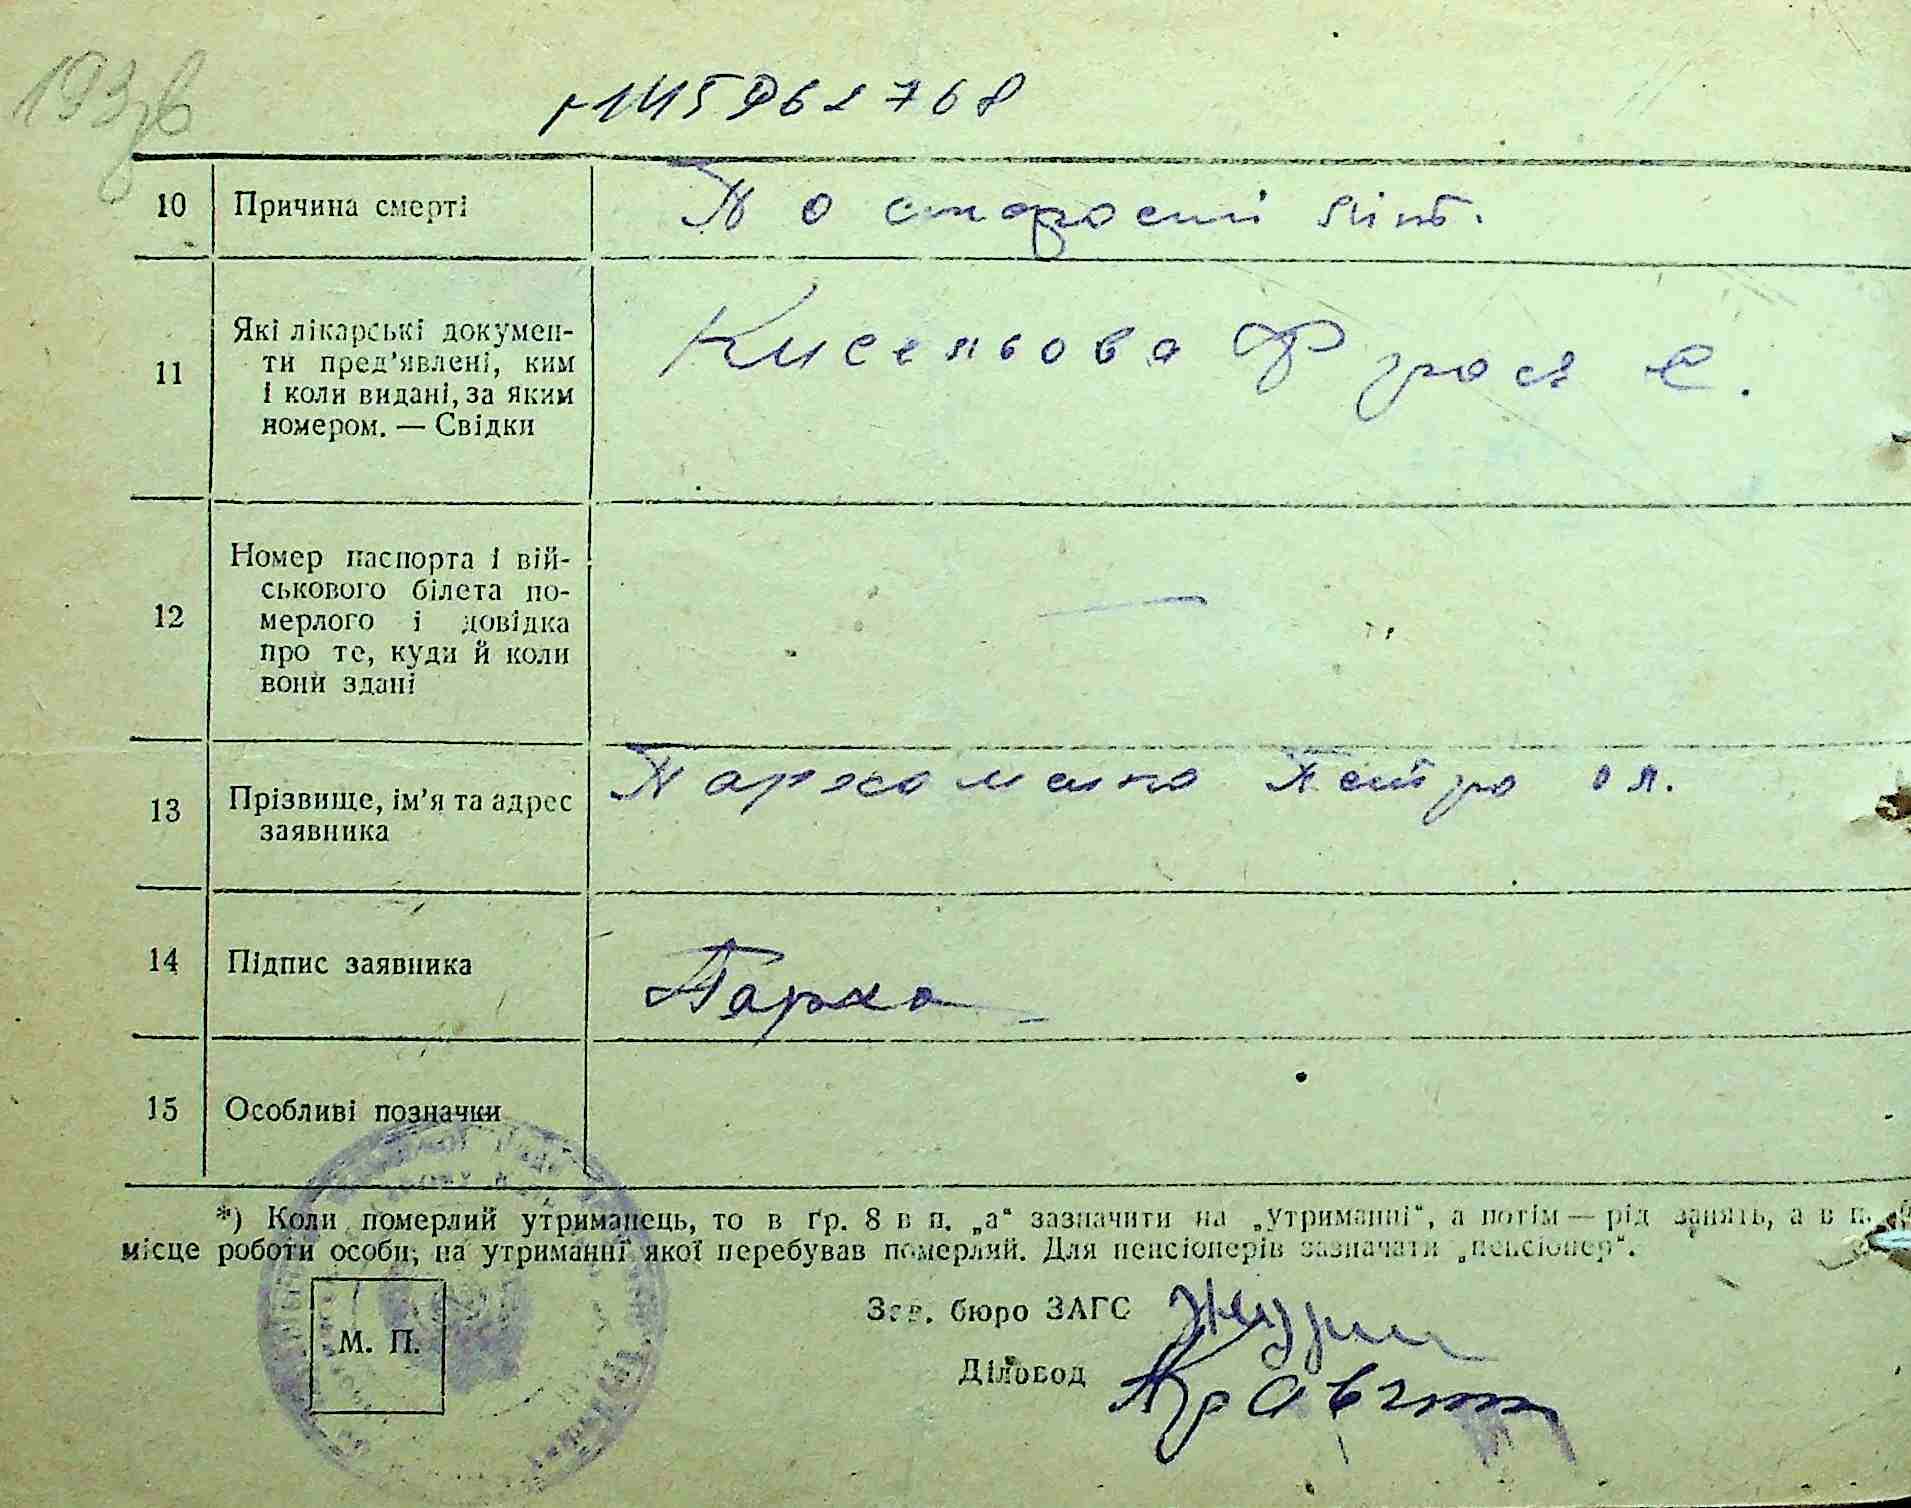 193
10 Причина смерті По старості літ.
11 Які лікарські докумен-
ти пред'явлені, ким
і коли видані, за яким
номером. — Свідки
Кисельова Фрося Є.
12 Номер паспорта і вій-
ськового білета по-
мерлого і довідка
про те, куди й коли
вони здані
—
13 Прізвище, ім'я та адрес
заявника
Пархоменко Петро ол.
14 Підпис заявника Пархо
15 Особливі позначки
*) Коли померлий утриманець, то в гр. 8 в п. „а“ зазначити на „утриманні“, а потім — рід занять, а в п.
місце роботи особи, на утриманні якої перебував померлий. Для пенсіонерів зазначати „пенсіонер“.
Зав. бюро ЗАГС
М. П.
Діловод